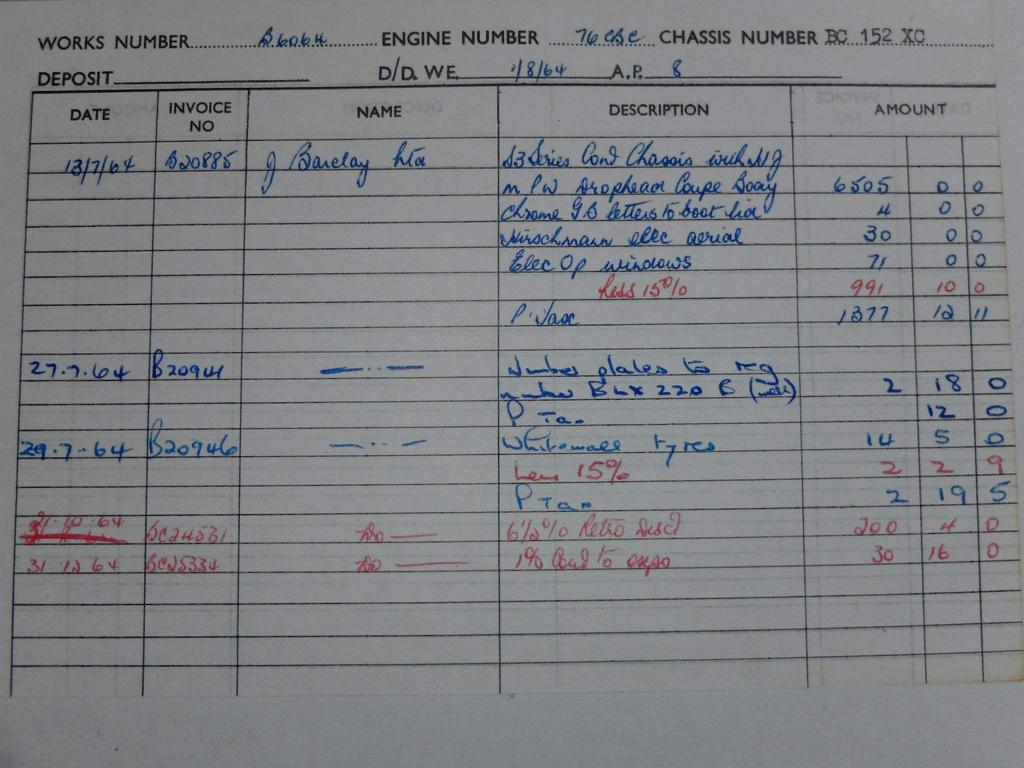 WORKS NUMBER B6064 ENGINE NUMBER 76 CBC CHASSIS NUMBER BC 152 XC
DEPOSIT D/D. WE. 1/8/64 A.P. 8
DATE INVOICE NO NAME DESCRIPTION AMOUNT
13/7/64 B20885 J Barclay Ltd S3 Series Cont Chassis with HJ
M P W Drophead Coupe Body 6505 0 0
Chrome GB letters to boot lid 4 0 0
Hirschmann elec aerial 30 0 0
Elec Op windows 71 0 0
Less 15% 991 10 0
P. Tax 1377 12 11
27.7.64 B20941 —··— Number plates to reg
number BLX 220 B 2 18 0
P Tax 12 0
29.7.64 B20946 —··— Whitewall tyres 14 5 0
Less 15% 2 2 9
P Tax 2 19 5
31.10.64 BC24531 Do — 6½% Retro Disct 200 4 0
31 12 64 BC25334 Do — 1% Cont to expo 30 16 0